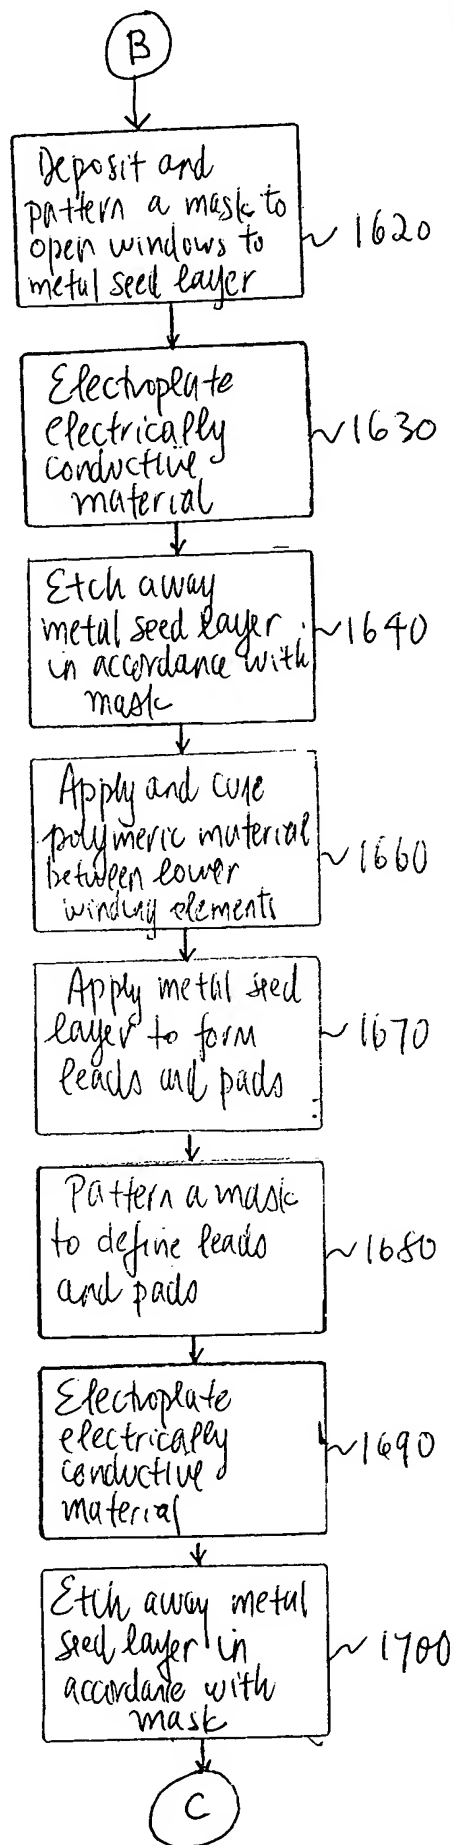 B
Deposit and
pattern a mask to
open windows to
metal seed layer
1620
Electroplate
electrically
conductive
material
1630
Etch away
metal seed layer
in accordance with
mask
1640
Apply and cure
polymeric material
between lower
winding elements
1660
Apply metal seed
layer to form
leads and pads
1670
Pattern a mask
to define leads
and pads
1680
Electroplate
electrically
conductive
material
1690
Etch away metal
seed layer in
accordance with
mask
1700
C